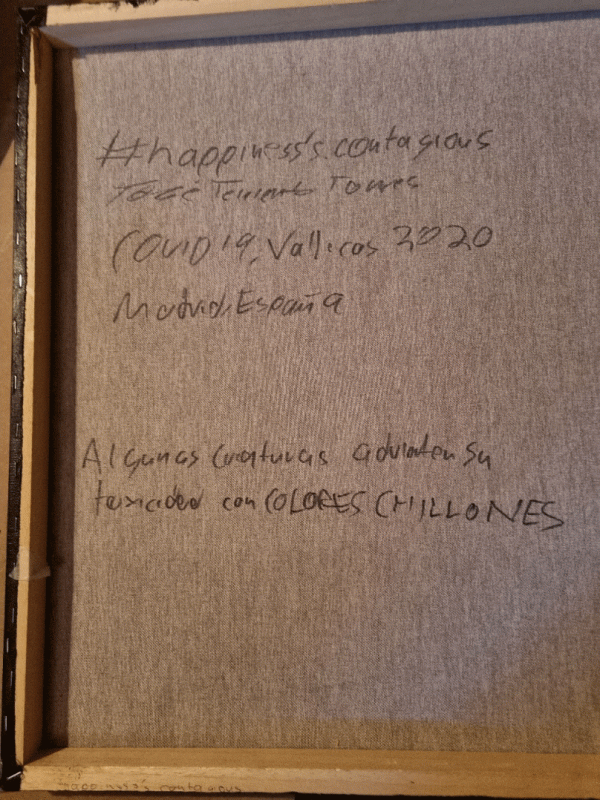 #happiness's contagious
José Torres
COVID19, Vallecas 2020
Madrid, España
Algunas criaturas advierten su
toxicidad con COLORES CHILLONES
happiness's contagious